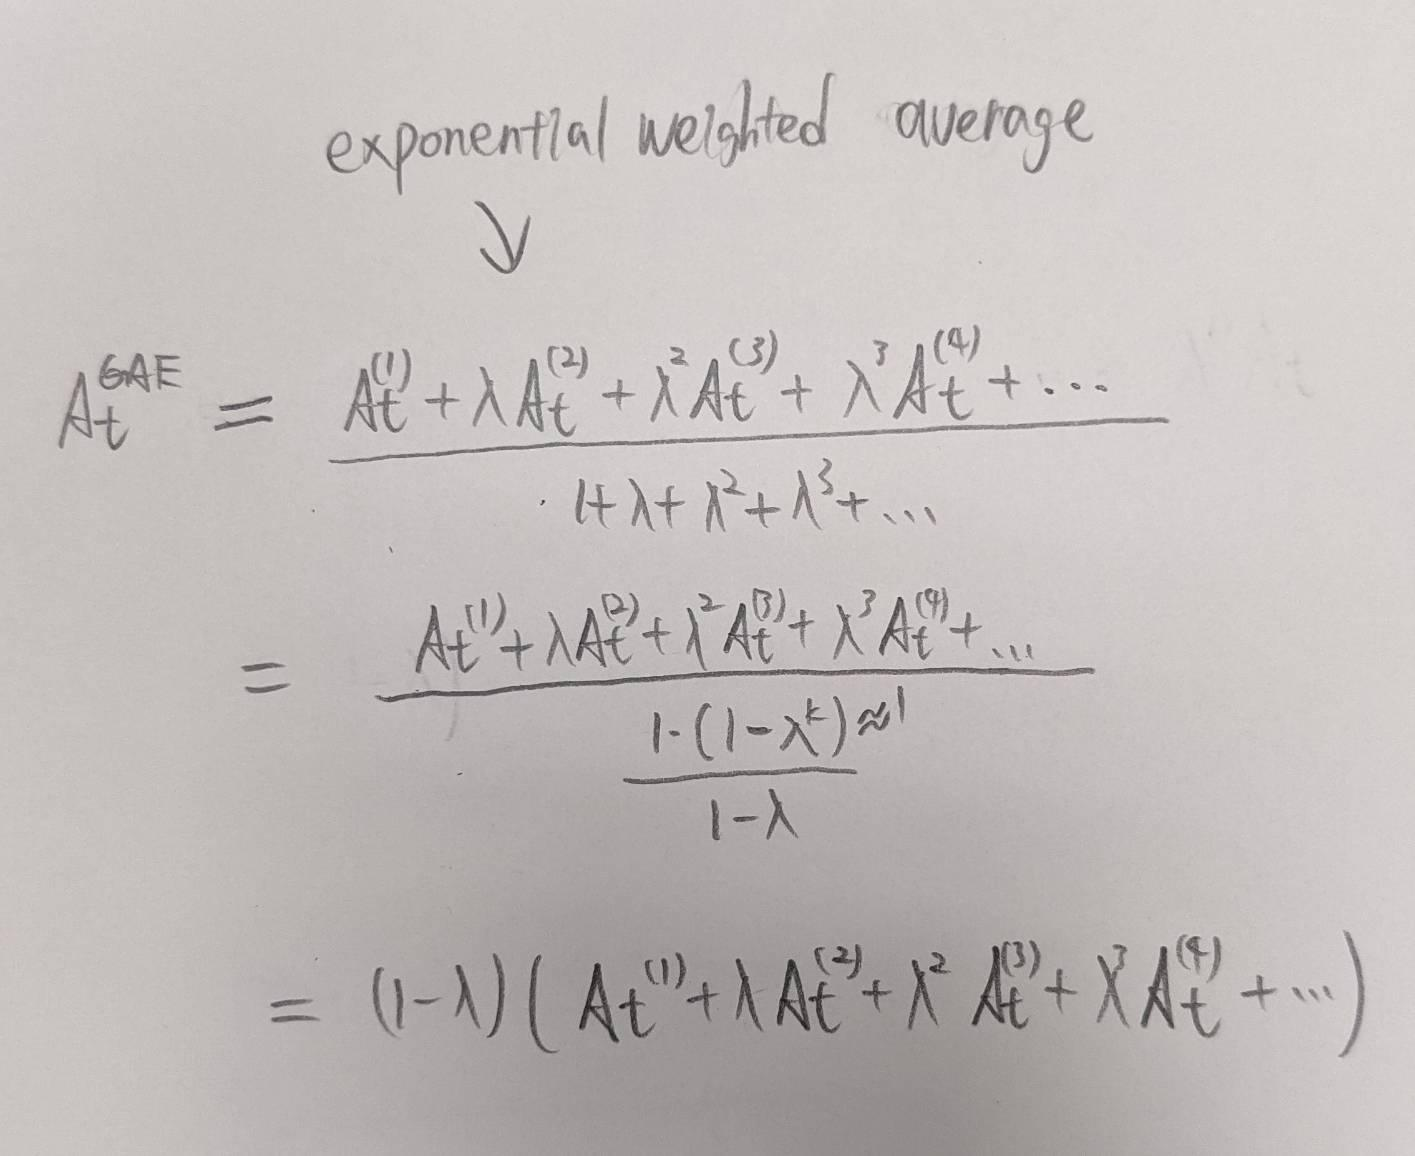 exponential weighted average
↓
A_t^{GAE} = \frac{A_t^{(1)} + λA_t^{(2)} + λ^2 A_t^{(3)} + λ^3 A_t^{(4)} + ...}{1 + λ + λ^2 + λ^3 + ...}
= \frac{A_t^{(1)} + λA_t^{(2)} + λ^2 A_t^{(3)} + λ^3 A_t^{(4)} + ...}{\frac{1·(1-λ^k) ≈ 1}{1-λ}}
= (1-λ)(A_t^{(1)} + λA_t^{(2)} + λ^2 A_t^{(3)} + λ^3 A_t^{(4)} + ...)